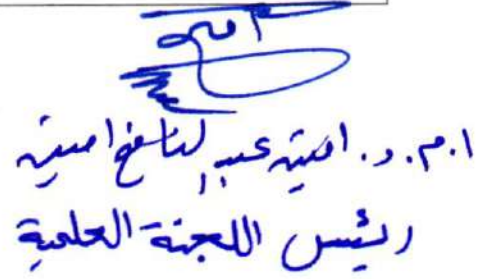 ا.م.د. امين عبد النافع امين
رئيس اللجنة العلمية